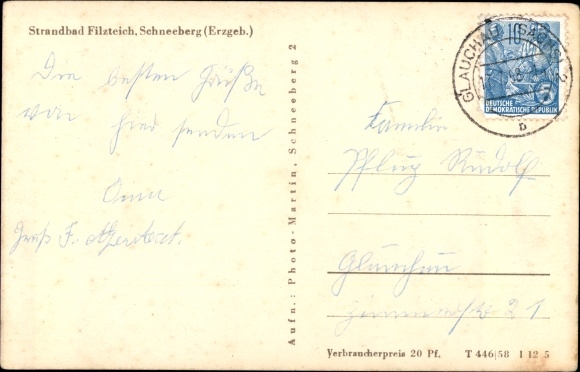 Strandbad Filzteich, Schneeberg (Erzgeb.)
Die besten Grüße
von hier senden
Gruß F.
Aufn.: Photo-Martin, Schneeberg 2
GLAUCHAU
10
DEUTSCHE
DEMOKRATISCHE REPUBLIK
5
b
Familie
Pflug Rudolf
Glauchau
21
Verbraucherpreis 20 Pf. T 446|58 I 12 5